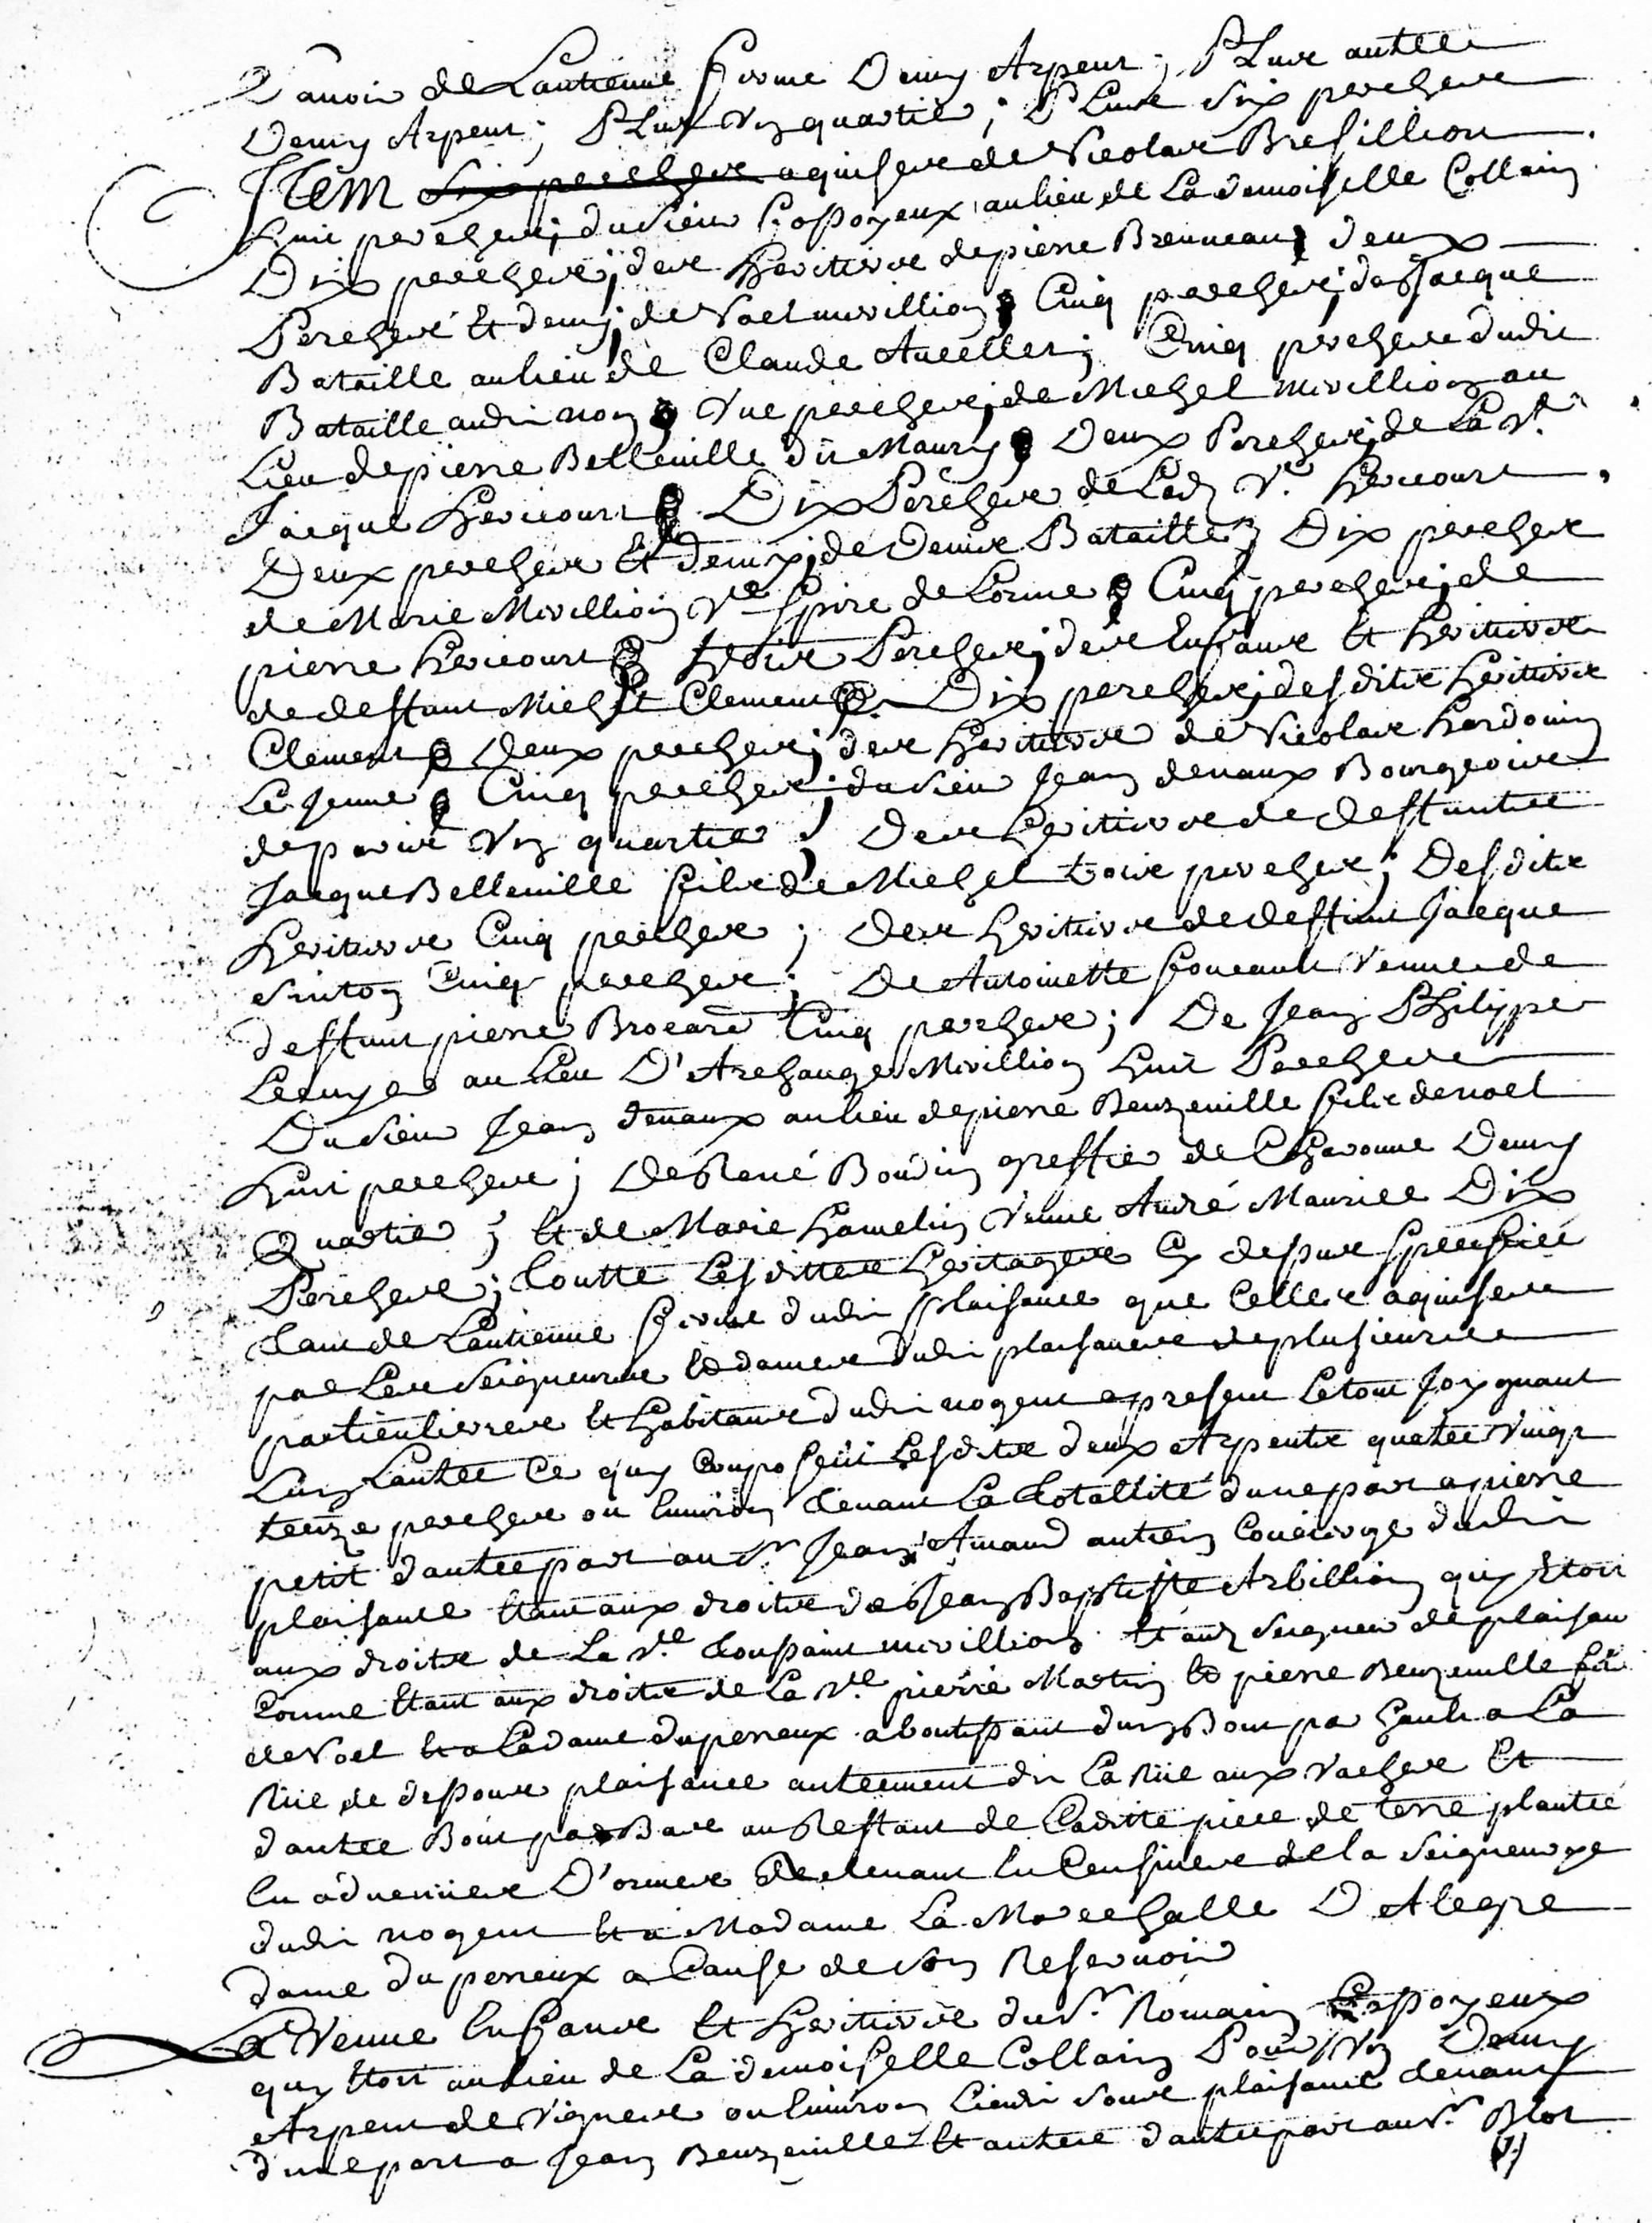 Scavoir de Lantienne ferme Demy Arpent; Plus autre
Demy Arpent; Plus Un quartier; Plus Six perches
Item Six perches aquises de Nicolas Bresillion
huit perches; du Sieur Lespoyeux au lieu de La demoiselle Collain
Dix perches; des heritiers de pierre Bruneau; deux
Perches et demy; de Noel mivillion; Cinq perches; de Jacque
Bataille au lieu de Claude Ancellet; Cinq perches dudit
Bataille audit nom; Une perches; de Michel Mivillion au
Lieu de pierre Belleville dit Maury; Deux Perches; de La Ve
Jacque hericourt; Dix Perches de Lad. Ve hericourt
Deux perches Et demy; de Denis Bataille; Dix perches
de Marie Mivillion Ve Spire de Lorme; Cinq perches; de
pierre hericourt; trois Perches; des Enfans Et heritiers
de deffunt Michel Clement; Dix perches; desdits heritiers
Clement; Deux perches; des heritiers de Nicolas hardouin
Le Jeune; Cinq perches; du Sieur Jean devaux Bourgeois
de paris Un quartier; Des heritiers de deffunte
Jacque Belleville fils de Michel trois perches; Desdits
heritiers Cinq perches; Des heritiers de deffunt Jacque
Sinton Cinq perches; De Antoinette foucault Veuve de
deffunt pierre Brocard Cinq perches; De Jean Philippe
Lecuyer au Lieu D'Archange Mivillion huit Perches
Du Sieur Jean devaux au lieu de pierre Beuzeville fils de noel
huit perches; De René Boudin greffier de Charonne Demy
Quartier; Et de Marie hamelin Veuve André Maurice Dix
Perches; toutte Lesdittes heritages Cy dessus speciffiée
tant de Lantienne ferme dudit plaisance que Celles aquises
par Les Seigneurs Et dames dudit plaisance de plusieurs
particuliers Et habitans dudit nogent a present Le tout Joygnant
Lun Lautre Ce quy Compose Lesdits deux Arpents quatre Vingt
treize perches ou Environ tenant La totallité dune part a pierre
petit dautre part au Sr Jean Amand antien Concierge dudit
plaisance Etant aux droits de Jean Baptiste Arbillion quy Etoit
aux droits de La Ve toussaint mivillion Et aud Seigneur de plaisan
Comme Etant aux droits de La Ve pierre Martin Et pierre Beuzeville fils
de Noel Et a La dame du perreux aboutissant dun Bout par hault a La
Rue de dessous plaisance autrement dit La Rue aux Vaches Et
dautre Bout par Bas au Restant de Laditte piece de terre plantée
En advenues D'ormes Et tenant En Censives de la Seigneurye
dudit nogent Et a Madame La Marechalle D'Alegre
dame du perreux a Cause de Son Reservoir
La Veuve Enfans Et heritiers du Sr Romain Lespoyeux
quy Etoit au Lieu de La demoiselle Collain Pour Un Demy
Arpent de Vignes ou Environ Lieudit Sous plaisance tenant
dune part a Jean Beuzeville Et autre dautre part au Sr Blot